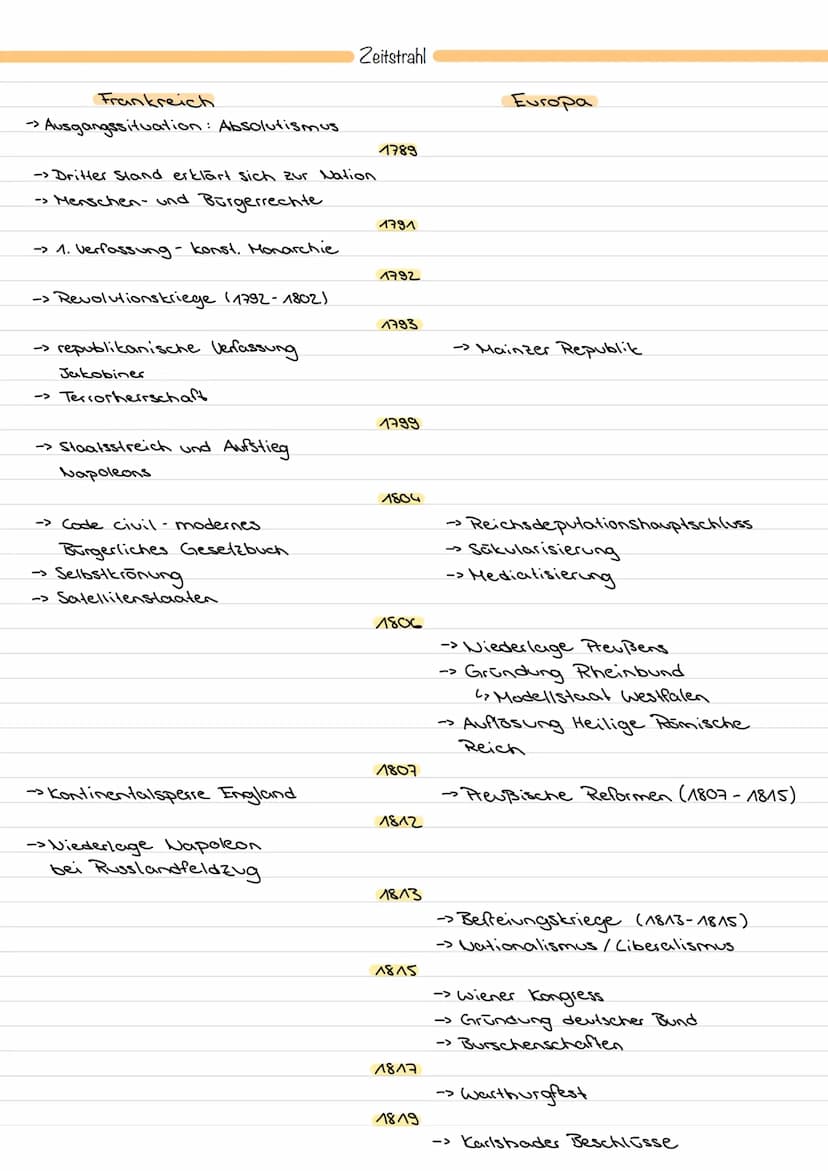 Zeitstrahl
Frankreich
Europa
-> Ausgangssituation: Absolutismus
1789
-> Dritter Stand erklärt sich zur Nation
-> Menschen- und Bürgerrechte
1791
-> 1. Verfassung - konst. Monarchie
1792
-> Revolutionskriege (1792 - 1802)
1793
-> republikanische Verfassung
Jakobiner
-> Terrorherrschaft
-> Mainzer Republik
1799
-> Staatsstreich und Aufstieg
Napoleons
1804
-> Code civil - modernes
Bürgerliches Gesetzbuch
-> Selbstkrönung
-> Satellitenstaaten
-> Reichsdeputationshauptschluss
-> Säkularisierung
-> Mediatisierung
1806
-> Niederlage Preußens
-> Gründung Rheinbund
↳ Modellstaat Westfalen
-> Auflösung Heilige Römische
Reich
1807
-> Kontinentalsperre England
-> Preußische Reformen (1807 - 1815)
1812
-> Niederlage Napoleon
bei Russlandfeldzug
1813
-> Befreiungskriege (1813-1815)
-> Nationalismus / Liberalismus
1815
-> Wiener Kongress
-> Gründung deutscher Bund
-> Burschenschaften
1817
-> Wartburgfest
1819
-> Karlsbader Beschlüsse